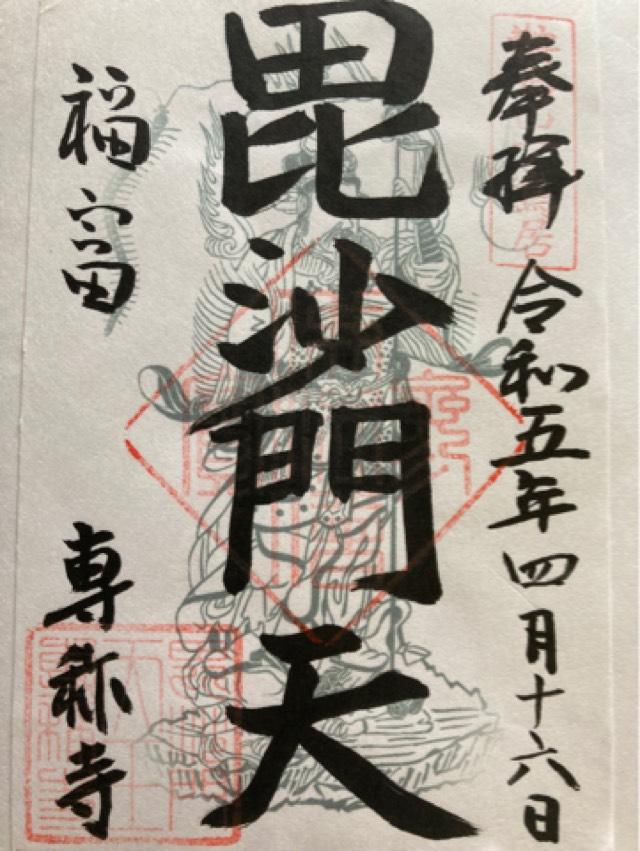 奉拝 令和五年四月十六日
毘沙門天
福富
専称寺